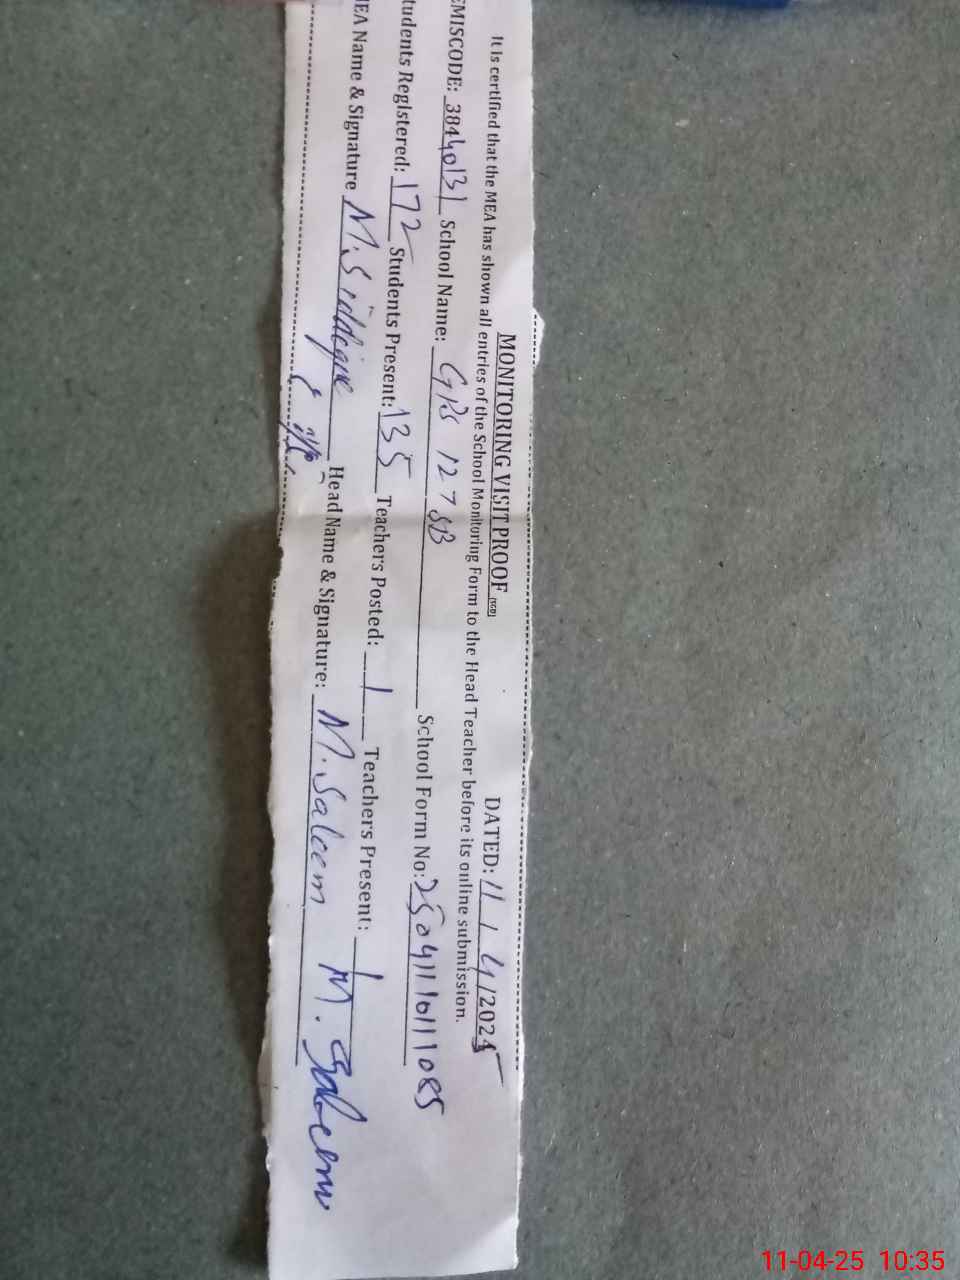 MONITORING VISIT PROOF (SGD) DATED: 11 / 4 /2025
It is certified that the MEA has shown all entries of the School Monitoring Form to the Head Teacher before its online submission.
EMISCODE: 38440131 School Name: GPS 127 SB School Form No: 250411101111085
tudents Registered: 172 Students Present: 135 Teachers Posted: 1 Teachers Present: 1
MEA Name & Signature M. Siddique Head Name & Signature: M. Saleem M. Saleem
11-04-25 10:35